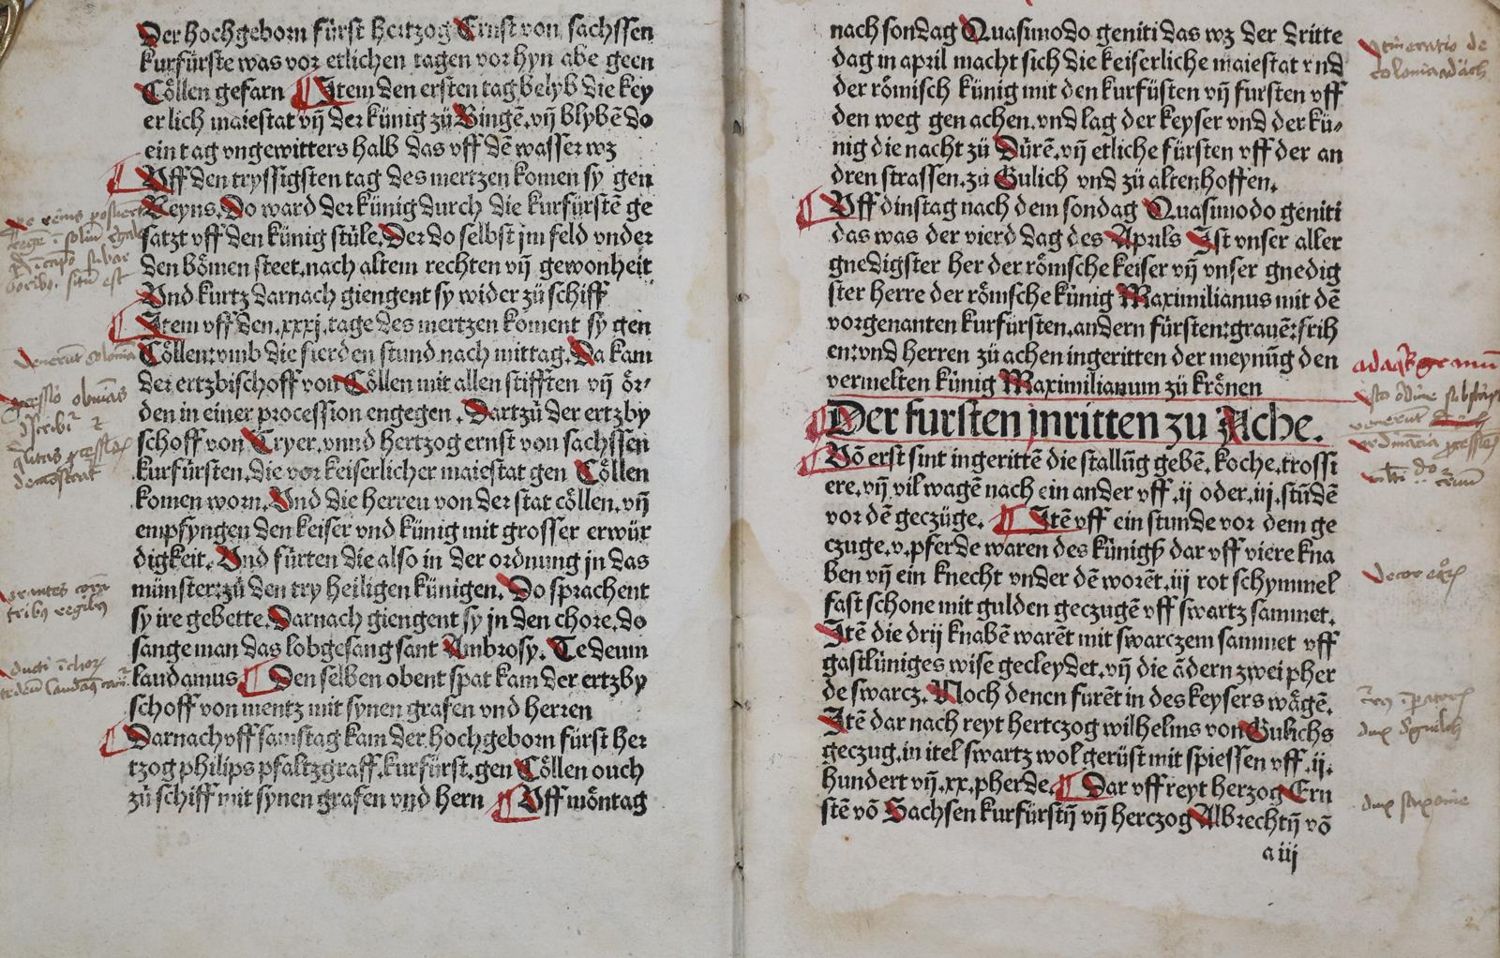 Der hochgeborn fürst hertzog Ernst von sachssen
kurfürste was vor etlichen tagen vorhyn abe geen
Cöllen gefarn ¶ Item den ersten tag belyb die key
erlich maiestat vñ der künig zü Bingē. vñ blybē do
ein tag vngewitters halb das vff dē wasser wz
¶ Vff den tryssigsten tag des mertzen komen sy gen
Reyns. Do ward der künig durch die kurfürstē ge
satzt vff den künig stüle. Der do selbst jm feld vnder
den bömen steet. nach altem rechten vñ gewonheit
Vnd kurtz darnach giengent sy wider zü schiff
¶ Item vff den .xxxj. tage des mertzen koment sy gen
Cöllen: vmb die fierden stund nach mittag. Da kam
der ertzbischoff von Cöllen mit allen stifften vñ ör-
den in einer procession engegen. Dartzü der ertzby
schoff von Tryer. vnnd hertzog ernst von sachssen
kurfürsten. die vor keiserlicher maiestat gen Cöllen
komen worn. Vnd die herren von der stat cöllen. vñ
empfyngen den keiser vnd künig mit grosser erwür
digkeit. Vnd fürten die also in der ordnung jn das
münster: zü den try heiligen künigen. Do sprachent
sy ire gebette. Darnach giengent sy jn den chore. do
sange man das lobgesang sant Ambrosy. Te deum
laudamus ¶ Den selben obent spat kam der ertzby
schoff von mentz mit synen grafen vnd herren
¶ Darnach vff samstag kam der hochgeborn fürst her
tzog philips pfaltzgraff. kurfürst. gen Cöllen ouch
zü schiff mit synen grafen vnd hern ¶ Vff möntag
nach sondag Quasimodo geniti das wz der dritte
dag in april macht sich die keiserliche maiestat vnd
der römisch künig mit den kurfüsten vñ fursten vff
den weg gen achen. vnd lag der keyser vnd der kü-
nig die nacht zü Dürē. vñ etliche fürsten vff der an
dren strassen. zü Gulich vnd zü altenhoffen.
¶ Vff dinstag nach dem sondag Quasimodo geniti
das was der vierd dag des Apruls Ist vnser aller
gnedigster her der römsche keiser vñ vnser gnedig
ster herre der römsche künig Maximilianus mit dē
vorgenanten kurfürsten. andern fürsten: grauē: frih
en: vnd herren zü achen ingeritten der meynūg den
vermelten künig Maximilianum zü krönen
¶ Der fursten jnritten zu Ache.
¶ Vō erst sint ingerittē die stallūg gebē. koche. trossi
ere. vñ vil wagē nach ein ander vff .ij oder .iij. stūdē
vor dē geczüge. ¶ Itē vff ein stunde vor dem ge
czuge. v. pferde waren des künigs dar vff viere kna
ben vñ ein knecht vnder dē worēt. iij rot schymmel
fast schone mit gulden geczugē vff swartz sammet.
Itē die drij knabē warēt mit swarczem sammet vff
gastküniges wise gecleydet. vñ die ādern zwei pher
de swarcz. Noch denen furēt in des keysers wägē.
Itē dar nach reyt hertczog wilhelms von Gulichs
geczug. in itel swartz wol gerüst mit spiessen vff .ij.
hundert vñ .xx. pherde. ¶ Dar vff reyt herzog Ern
stē vō Sachsen kurfürstñ vñ herczog Albrechtñ vō
a iij